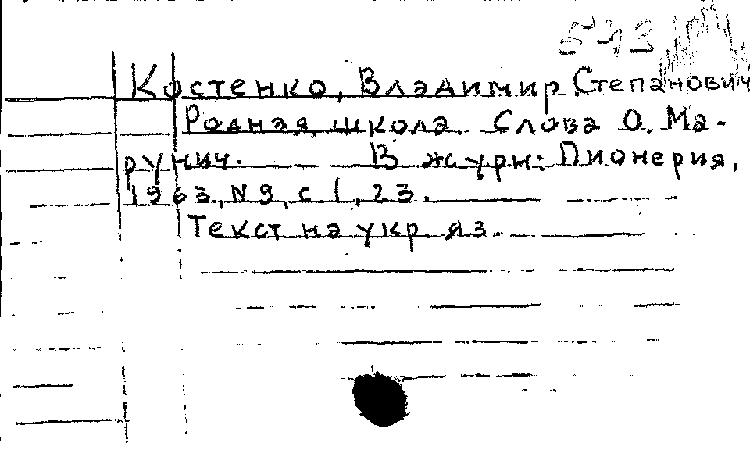 543
Костенко, Владимир Степанович
Родная школа. Слова О. Ма-
рунич. В журн: Пионерия,
1963, N 9, с 1, 23.
Текст на укр. яз.